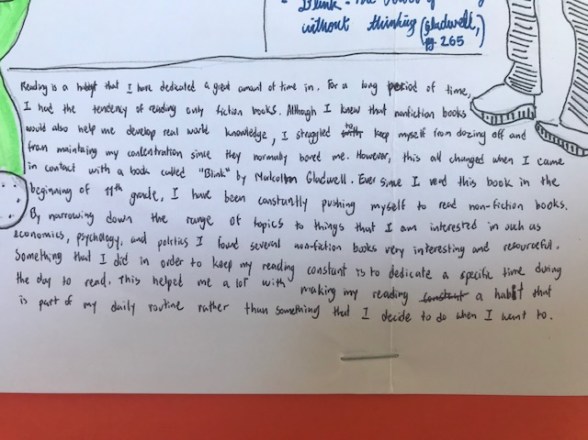 Blink - The
without thinking (Gladwell,
pg 265
Reading is a habit that I have dedicated a great amount of time in. For a long period of time,
I had the tendency of reading only fiction books. Although I knew that nonfiction books
would also help me develop real world knowledge, I struggled to keep myself from dozing off and
from maintaing my concentration since they normally bored me. However, this all changed when I came
in contact with a book called "Blink" by Malcolmn Gladwell. Ever since I read this book in the
beginning of 11th grade, I have been constantly pushing myself to read non-fiction books.
By narrowing down the range of topics to things that I am interested in such as
economics, psychology, and politics I found several non-fiction books very interesting and resourceful.
Something that I did in order to keep my reading constant is to dedicate a specific time during
the day to read. This helped me a lot with making my reading constant a habit that
is part of my daily routine rather than something that I decide to do when I want to.